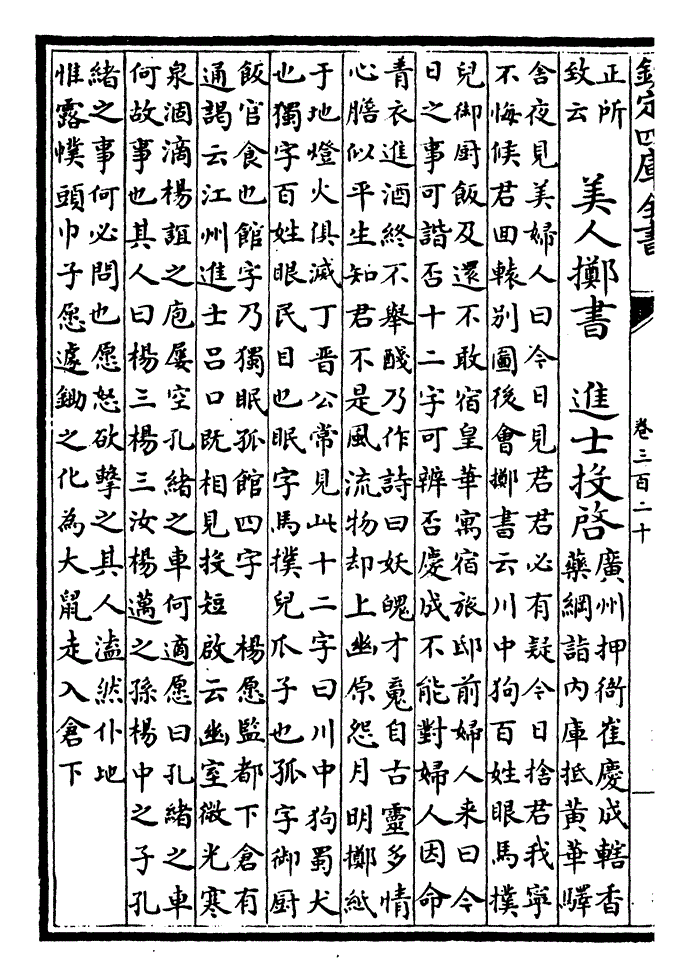 欽定四庫全書
卷三百二十
正所
致云
美人擲書 進士投啓
廣州押衙崔慶成轄香
藥綱詣内庫抵黄華驛
舍夜見美婦人曰今日見君君必有疑今日捨君我寧
不悔候君回轅别圖後會擲書云川中狗百姓眼馬撲
兒御厨飯及還不敢宿皇華寓宿旅邸前婦人来曰今
日之事可諧否十二字可辨否慶成不能對婦人因命
青衣進酒終不舉醆乃作詩曰妖魄才䰟自古靈多情
心膽似平生知君不是風流物却上幽原怨月明擲紙
于地燈火俱滅丁晋公常見此十二字曰川中狗蜀犬
也獨字百姓眼民目也眠字馬撲兒爪子也孤字御厨
飯官食也館字乃獨眠孤館四字 楊愿監都下倉有
通謁云江州進士吕口既相見投短啟云幽室微光寒
泉涸滴楊誼之庖屢空孔緒之車何適愿曰孔緒之車
何故事也其人曰楊三楊三汝楊邁之孫楊中之子孔
緒之事何必問也愿怒欲擊之其人溘然仆地
惟露幞頭巾子愿遽鋤之化為大鼠走入倉下